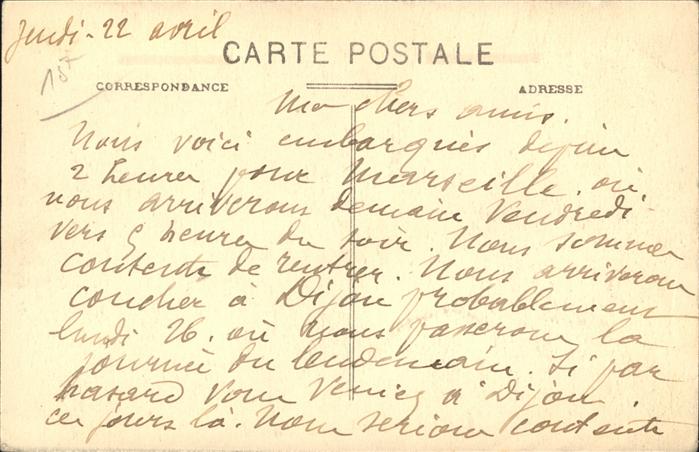 Jeudi - 22 avril
CARTE POSTALE
CORRESPONDANCE
ADRESSE
Mes chers amis.
Nous voici embarqués depuis
2 heures pour Marseille. où
nous arriverons demain Vendredi
vers 5 heures du soir. Nous sommes
contents de rentrer. Nous arriverons
coucher à Dijon probablement
lundi 26. où nous passerons la
journée du lendemain. Si par
hasard vous veniez à Dijon
ces jours là. Nous serions contents